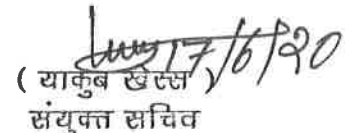 17/6/20
( याकुब खेस्स )
संयुक्त सचिव